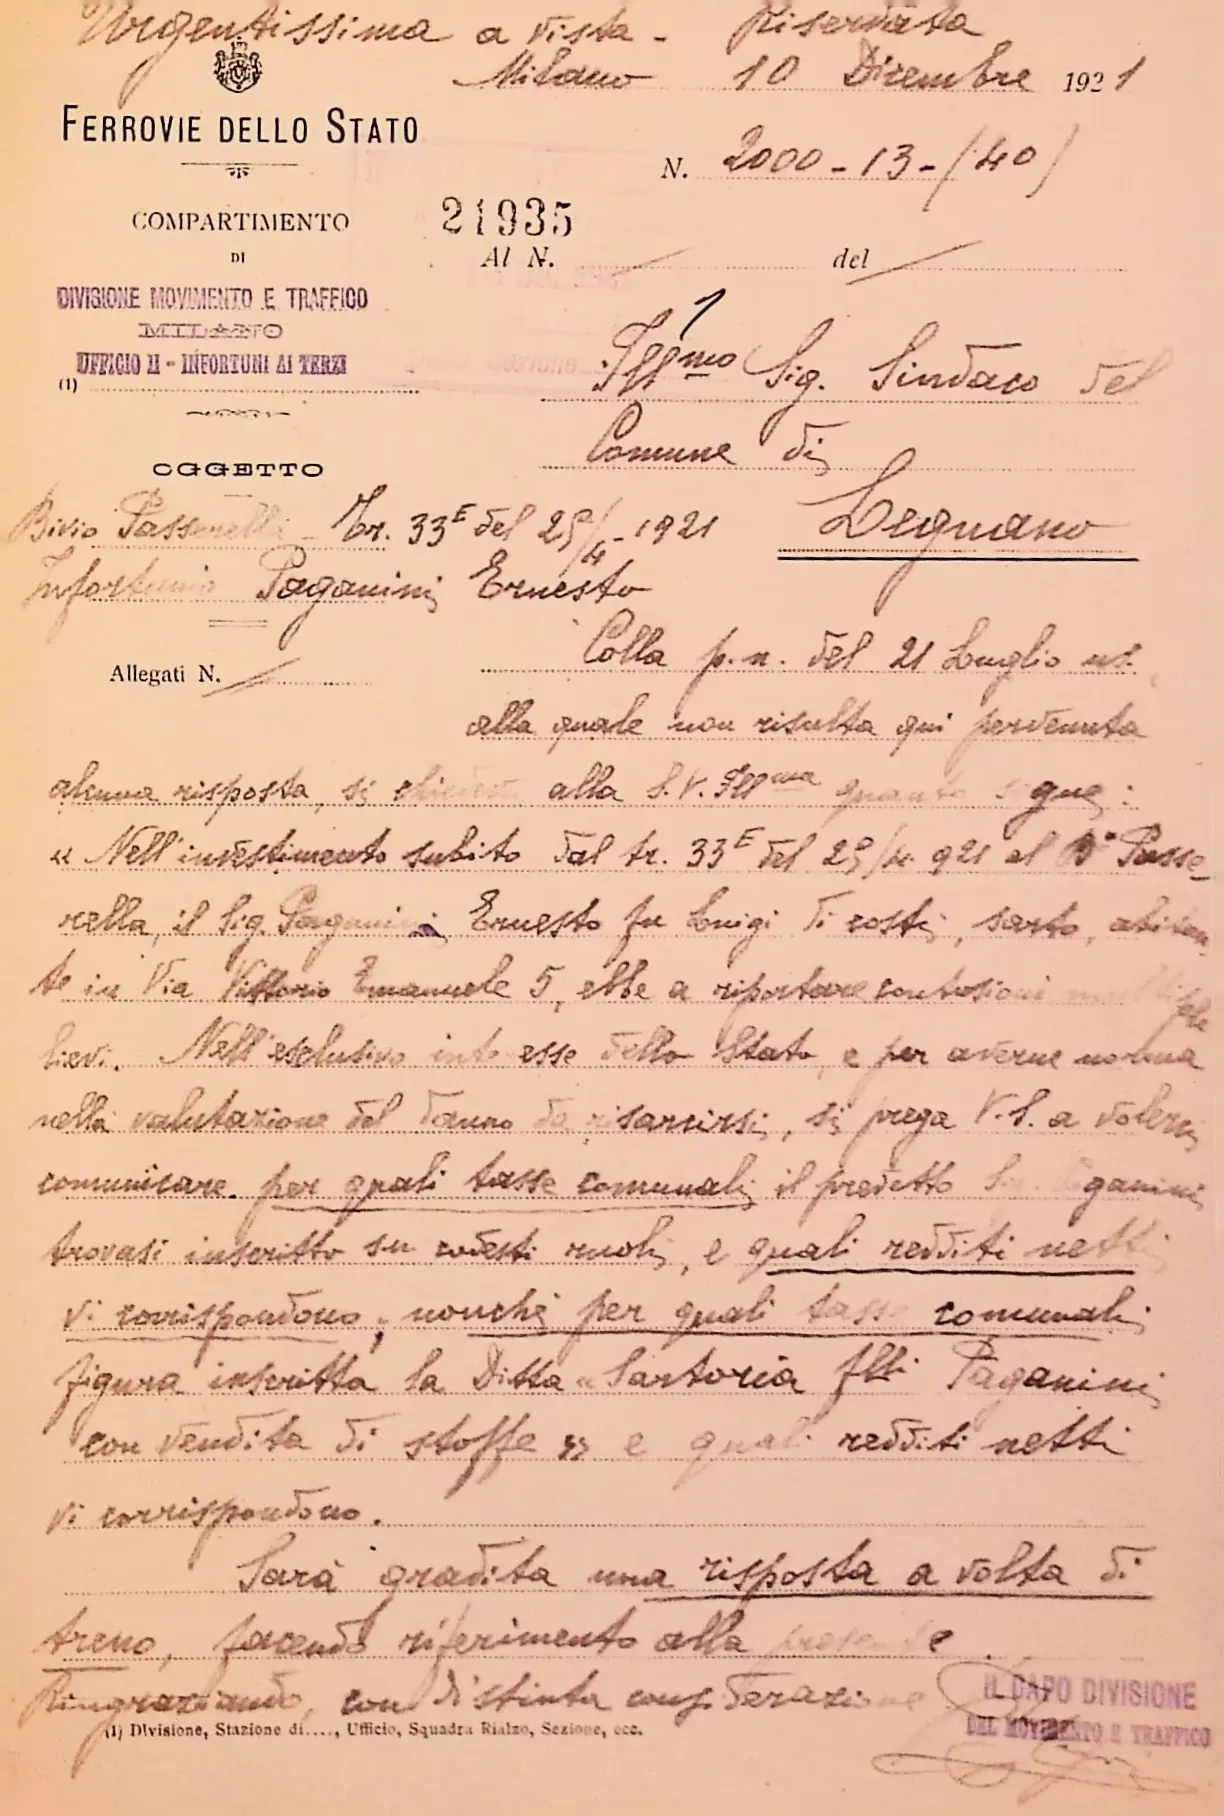 Urgentissima a vista - Riservata
Milano 10 Dicembre 1921
FERROVIE DELLO STATO
N. 2000-13-(40)
COMPARTIMENTO
DI
21935
Al N. del
DIVISIONE MOVIMENTO E TRAFFICO
MILANO
UFFICIO II - INFORTUNI AI TERZI
(1)
Ill mo Sig. Sindaco del
Comune di
Legnano
OGGETTO
Bivio Passerella - Tr. 33E del 29/4-1921
Infortunio Paganini Ernesto
Allegati N.
Colla p.n. del 21 Luglio us.
alla quale non risulta qui pervenuta
alcuna risposta, si chiedeva alla S.V. Ill ma quanto segue:
« Nell'investimento subito dal tr. 33E del 29/4 921 al B° Passe-
rella, il Sig. Paganini Ernesto fu Luigi di costì, sarto, abitan-
te in Via Vittorio Emanuele 5, ebbe a riportare contusioni multiple
lievi. Nell'esclusivo interesse dello Stato, e per averne norma
nella valutazione del danno da risarcirsi, si prega V.S. a volerci
comunicare per quali tasse comunali il predetto Sig. Paganini
trovasi inscritto su codesti ruoli, e quali redditi netti
vi corrispondono; nonchè per quali tasse comunali
figura inscritta la Ditta "Sartoria flli Paganini
con vendita di stoffe" e quali redditi netti
vi corrispondono.
Sarà gradita una risposta a volta di
treno, facendo riferimento alla presente.
Ringraziando, con distinta considerazione
IL CAPO DIVISIONE
DEL MOVIMENTO E TRAFFICO
(1) Divisione, Stazione di...., Ufficio, Squadra Rialzo, Sezione, ecc.